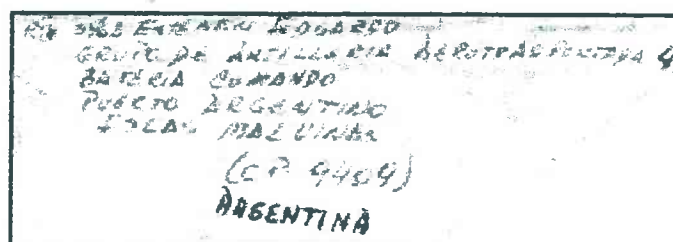 GRUPO DE ARTILLERIA AEROTRANSPORTADA 4
BATERIA COMANDO
PUERTO ARGENTINO
ISLAS MALVINAS
(CP 9409)
ARGENTINA